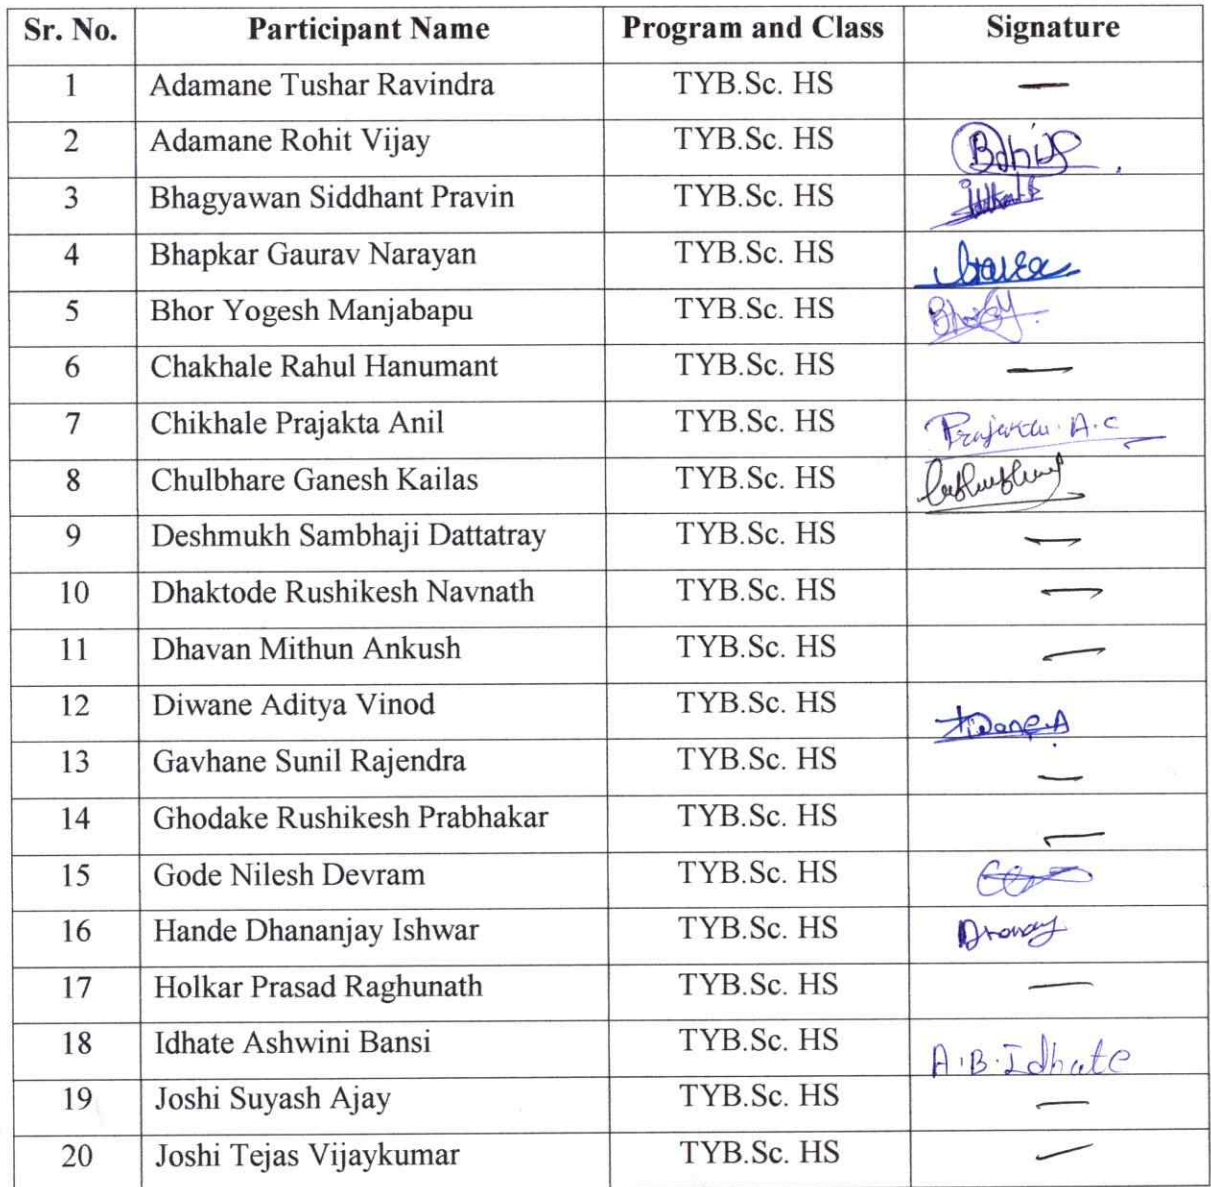 Sr. No. Participant Name Program and Class Signature
1 Adamane Tushar Ravindra TYB.Sc. HS —
2 Adamane Rohit Vijay TYB.Sc. HS
3 Bhagyawan Siddhant Pravin TYB.Sc. HS
4 Bhapkar Gaurav Narayan TYB.Sc. HS
5 Bhor Yogesh Manjabapu TYB.Sc. HS
6 Chakhale Rahul Hanumant TYB.Sc. HS —
7 Chikhale Prajakta Anil TYB.Sc. HS Prajakta. A.C
8 Chulbhare Ganesh Kailas TYB.Sc. HS
9 Deshmukh Sambhaji Dattatray TYB.Sc. HS —
10 Dhaktode Rushikesh Navnath TYB.Sc. HS —
11 Dhavan Mithun Ankush TYB.Sc. HS —
12 Diwane Aditya Vinod TYB.Sc. HS Diwane.A
13 Gavhane Sunil Rajendra TYB.Sc. HS —
14 Ghodake Rushikesh Prabhakar TYB.Sc. HS —
15 Gode Nilesh Devram TYB.Sc. HS
16 Hande Dhananjay Ishwar TYB.Sc. HS
17 Holkar Prasad Raghunath TYB.Sc. HS —
18 Idhate Ashwini Bansi TYB.Sc. HS A.B.Idhate
19 Joshi Suyash Ajay TYB.Sc. HS —
20 Joshi Tejas Vijaykumar TYB.Sc. HS —